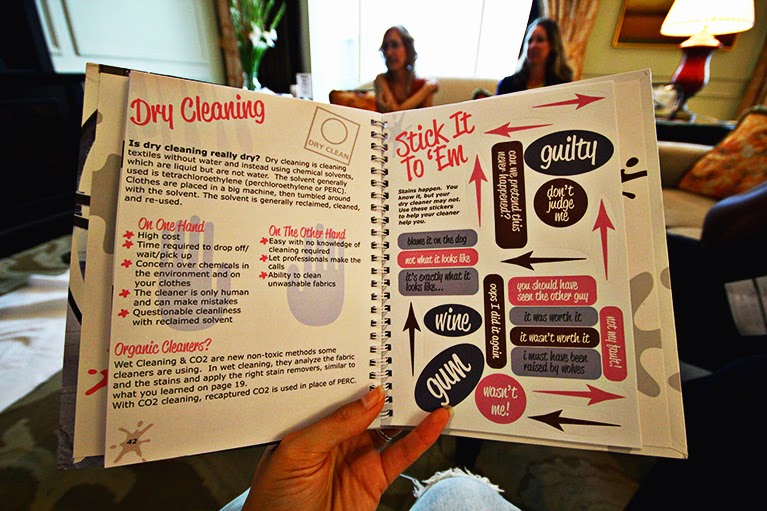 Dry Cleaning
DRY CLEAN
Is dry cleaning really dry? Dry cleaning is cleaning
textiles without water and instead using chemical solvents,
which are liquid but are not water. The solvent generally
used is tetrachloroethylene (perchloroethylene or PERC).
Clothes are placed in a big machine, then tumbled around
with the solvent. The solvent is generally reclaimed, cleaned,
and re-used.
On One Hand
High cost
Time required to drop off/
wait/pick up
Concern over chemicals in
the environment and on
your clothes
The cleaner is only human
and can make mistakes
Questionable cleanliness
with reclaimed solvent
On The Other Hand
Easy with no knowledge of
cleaning required
Let professionals make the
calls
Ability to clean
unwashable fabrics
Organic Cleaners?
Wet Cleaning & CO2 are new non-toxic methods some
cleaners are using. In wet cleaning, they analyze the fabric
and the stains and apply the right stain removers, similar to
what you learned on page 19.
With CO2 cleaning, recaptured CO2 is used in place of PERC.
42
Stick It
To 'Em
Stains happen. You
know it, but your
dry cleaner may not.
Use these stickers
to help your cleaner
help you.
can we pretend this
never happened?
guilty
don't
judge
me
blame it on the dog
not what it looks like
it's exactly what it
looks like...
wine
gum
oops I did it again
you should have
seen the other guy
it was worth it
it wasn't worth it
i must have been
raised by wolves
not my fault!
wasn't
me!